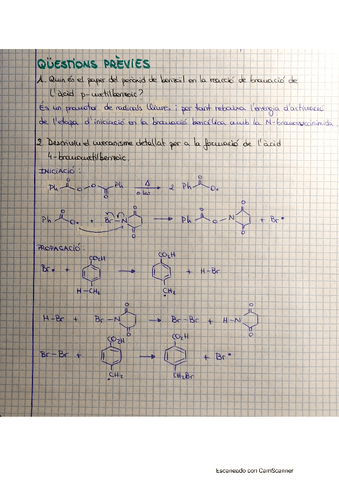 QÜESTIONS PRÈVIES
1. Quin és el paper del peròxid de benzoil en la reacció de bromació de
l'àcid p-metilbenzoic?
És un promotor de radicals lliures i per tant rebaixa l'energia d'activació
de l'etapa d'iniciació en la bromació bencílica amb la N-bromosuccinimida.
2. Desenvolupi el mecanisme detallat per a la formació de l'àcid
4-bromometilbenzoic.
INICIACIÓ:
Ph O O O O Ph Δ 2 Ph O O•
Ph O O• + Br-N O O Ph O O O N O + Br•
PROPAGACIÓ:
Br• + CO2H H-CH2 CO2H CH2 + H-Br
H-Br + Br-N O O Br-Br + H-N O O
Br-Br + CO2H CH2 CO2H CH2Br + Br•
Escaneado con CamScanner